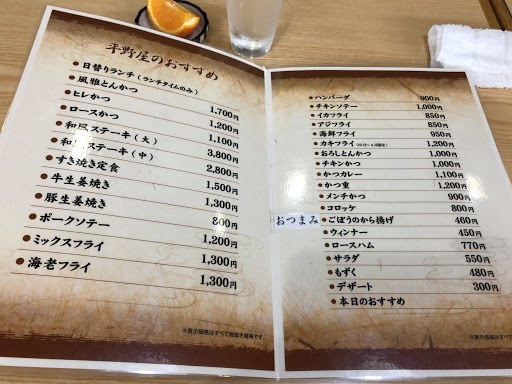 平野屋のおすすめ
日替りランチ（ランチタイムのみ）
風雅とんかつ 1,700円
ヒレかつ 1,200円
ロースかつ 1,100円
和風ステーキ（大） 3,800円
和風ステーキ（中） 2,800円
すき焼き定食 1,500円
牛生姜焼き 1,300円
豚生姜焼き 800円
ポークソテー 1,200円
ミックスフライ 1,300円
海老フライ 1,300円
※表示価格はすべて税抜き価格です。
ハンバーグ 900円
チキンソテー 1,000円
イカフライ 850円
アジフライ 850円
海鮮フライ 950円
カキフライ 1,200円
おろしとんかつ 1,200円
チキンかつ 1,000円
かつカレー 1,100円
かつ重 1,200円
メンチかつ 900円
コロッケ 800円
おつまみ
ごぼうのから揚げ 460円
ウィンナー 450円
ロースハム 770円
サラダ 550円
もずく 480円
デザート 300円
本日のおすすめ
※表示価格はすべて税抜き価格です。